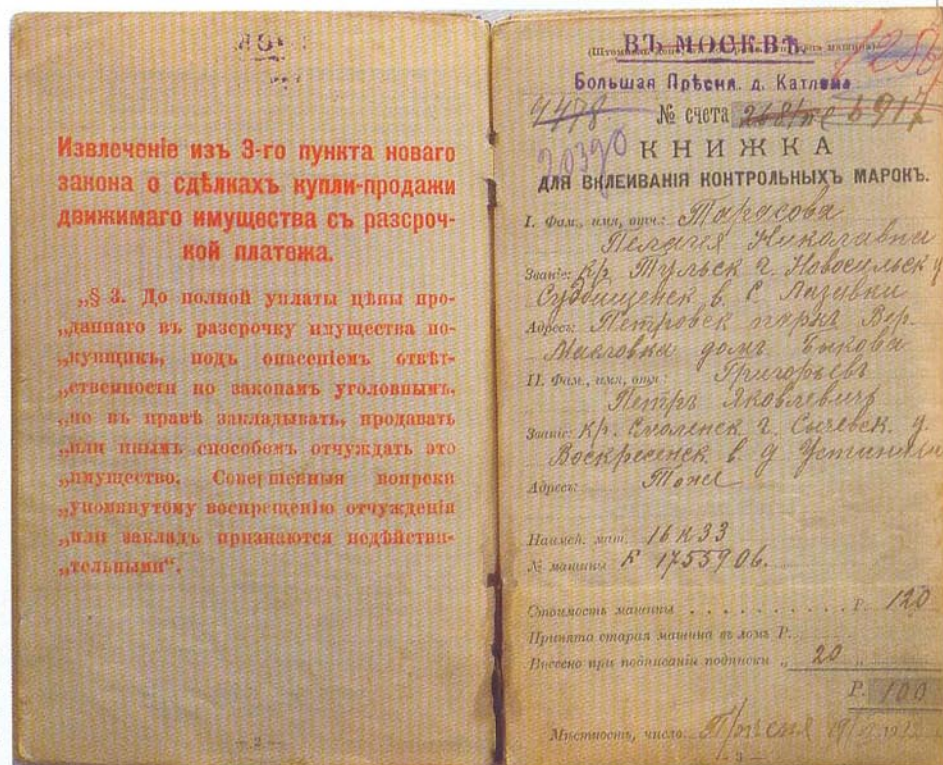 Извлеченіе изъ 3-го пункта новаго
закона о сдѣлкахъ купли-продажи
движимаго имущества съ разсроч-
кой платежа.
„§ 3. До полной уплаты цѣны про-
„даннаго въ разсрочку имущества по-
„купщикъ, подъ опасеніемъ отвѣт-
„ственности по законамъ уголовнымъ,
„не въ правѣ закладывать, продавать
„или инымъ способомъ отчуждать это
„имущество. Совершенныя вопреки
„упомянутому воспрещенію отчужденія
„или закладъ признаются недѣйстви-
„тельными“.
— 2 —
ВЪ МОСКВѢ.
Большая Прѣсня. д. Катлама
4478 № счета 6917
20390
КНИЖКА
ДЛЯ ВКЛЕИВАНІЯ КОНТРОЛЬНЫХЪ МАРОКЪ.
I. Фам., имя, отч.: Тарасова
Пелагея Николавна
Званіе: Кр. Тульск г. Новосильск у
Судбищенск в. с Лазавки
Адресъ: Петровск паркъ Вер.
Масловка домъ Быкова
II. Фам., имя, отч.: Григорьевъ
Петръ Яковлевичъ
Званіе: Кр. Смоленск г. Сычевск. у.
Воскресенск в. д
Адресъ: Тоже
Наимен. маш. 16 К 33
№ машины К 1755906.
Стоимость машины . . . . . . . . . . Р. 120
Принята старая машина въ ломъ Р.
Внесено при подписаніи подписки „ 20 „
Р. 100
Мѣстность, число: Прѣсня
— 3 —